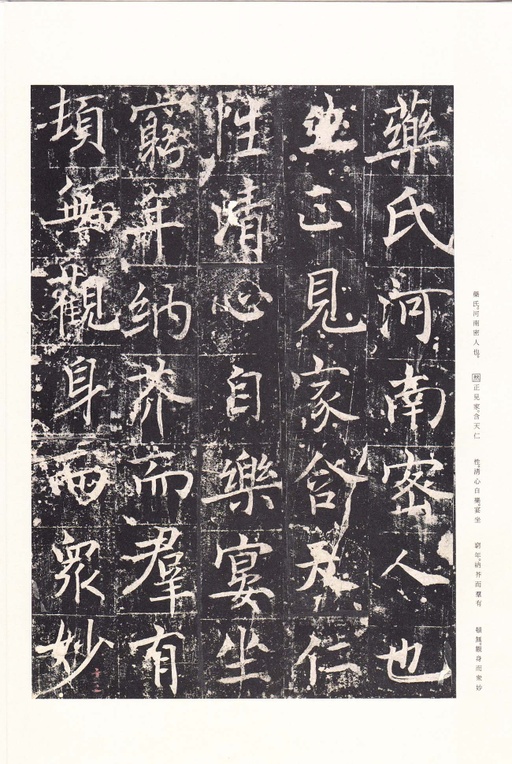 藥氏河南密人也
正見家含天仁
性清心自樂宴坐
窮年納芥而羣有
頃無觀身而衆妙
藥氏河南密人也 正見家含天仁 性清心自樂宴坐 窮年納芥而羣有 頃無觀身而衆妙